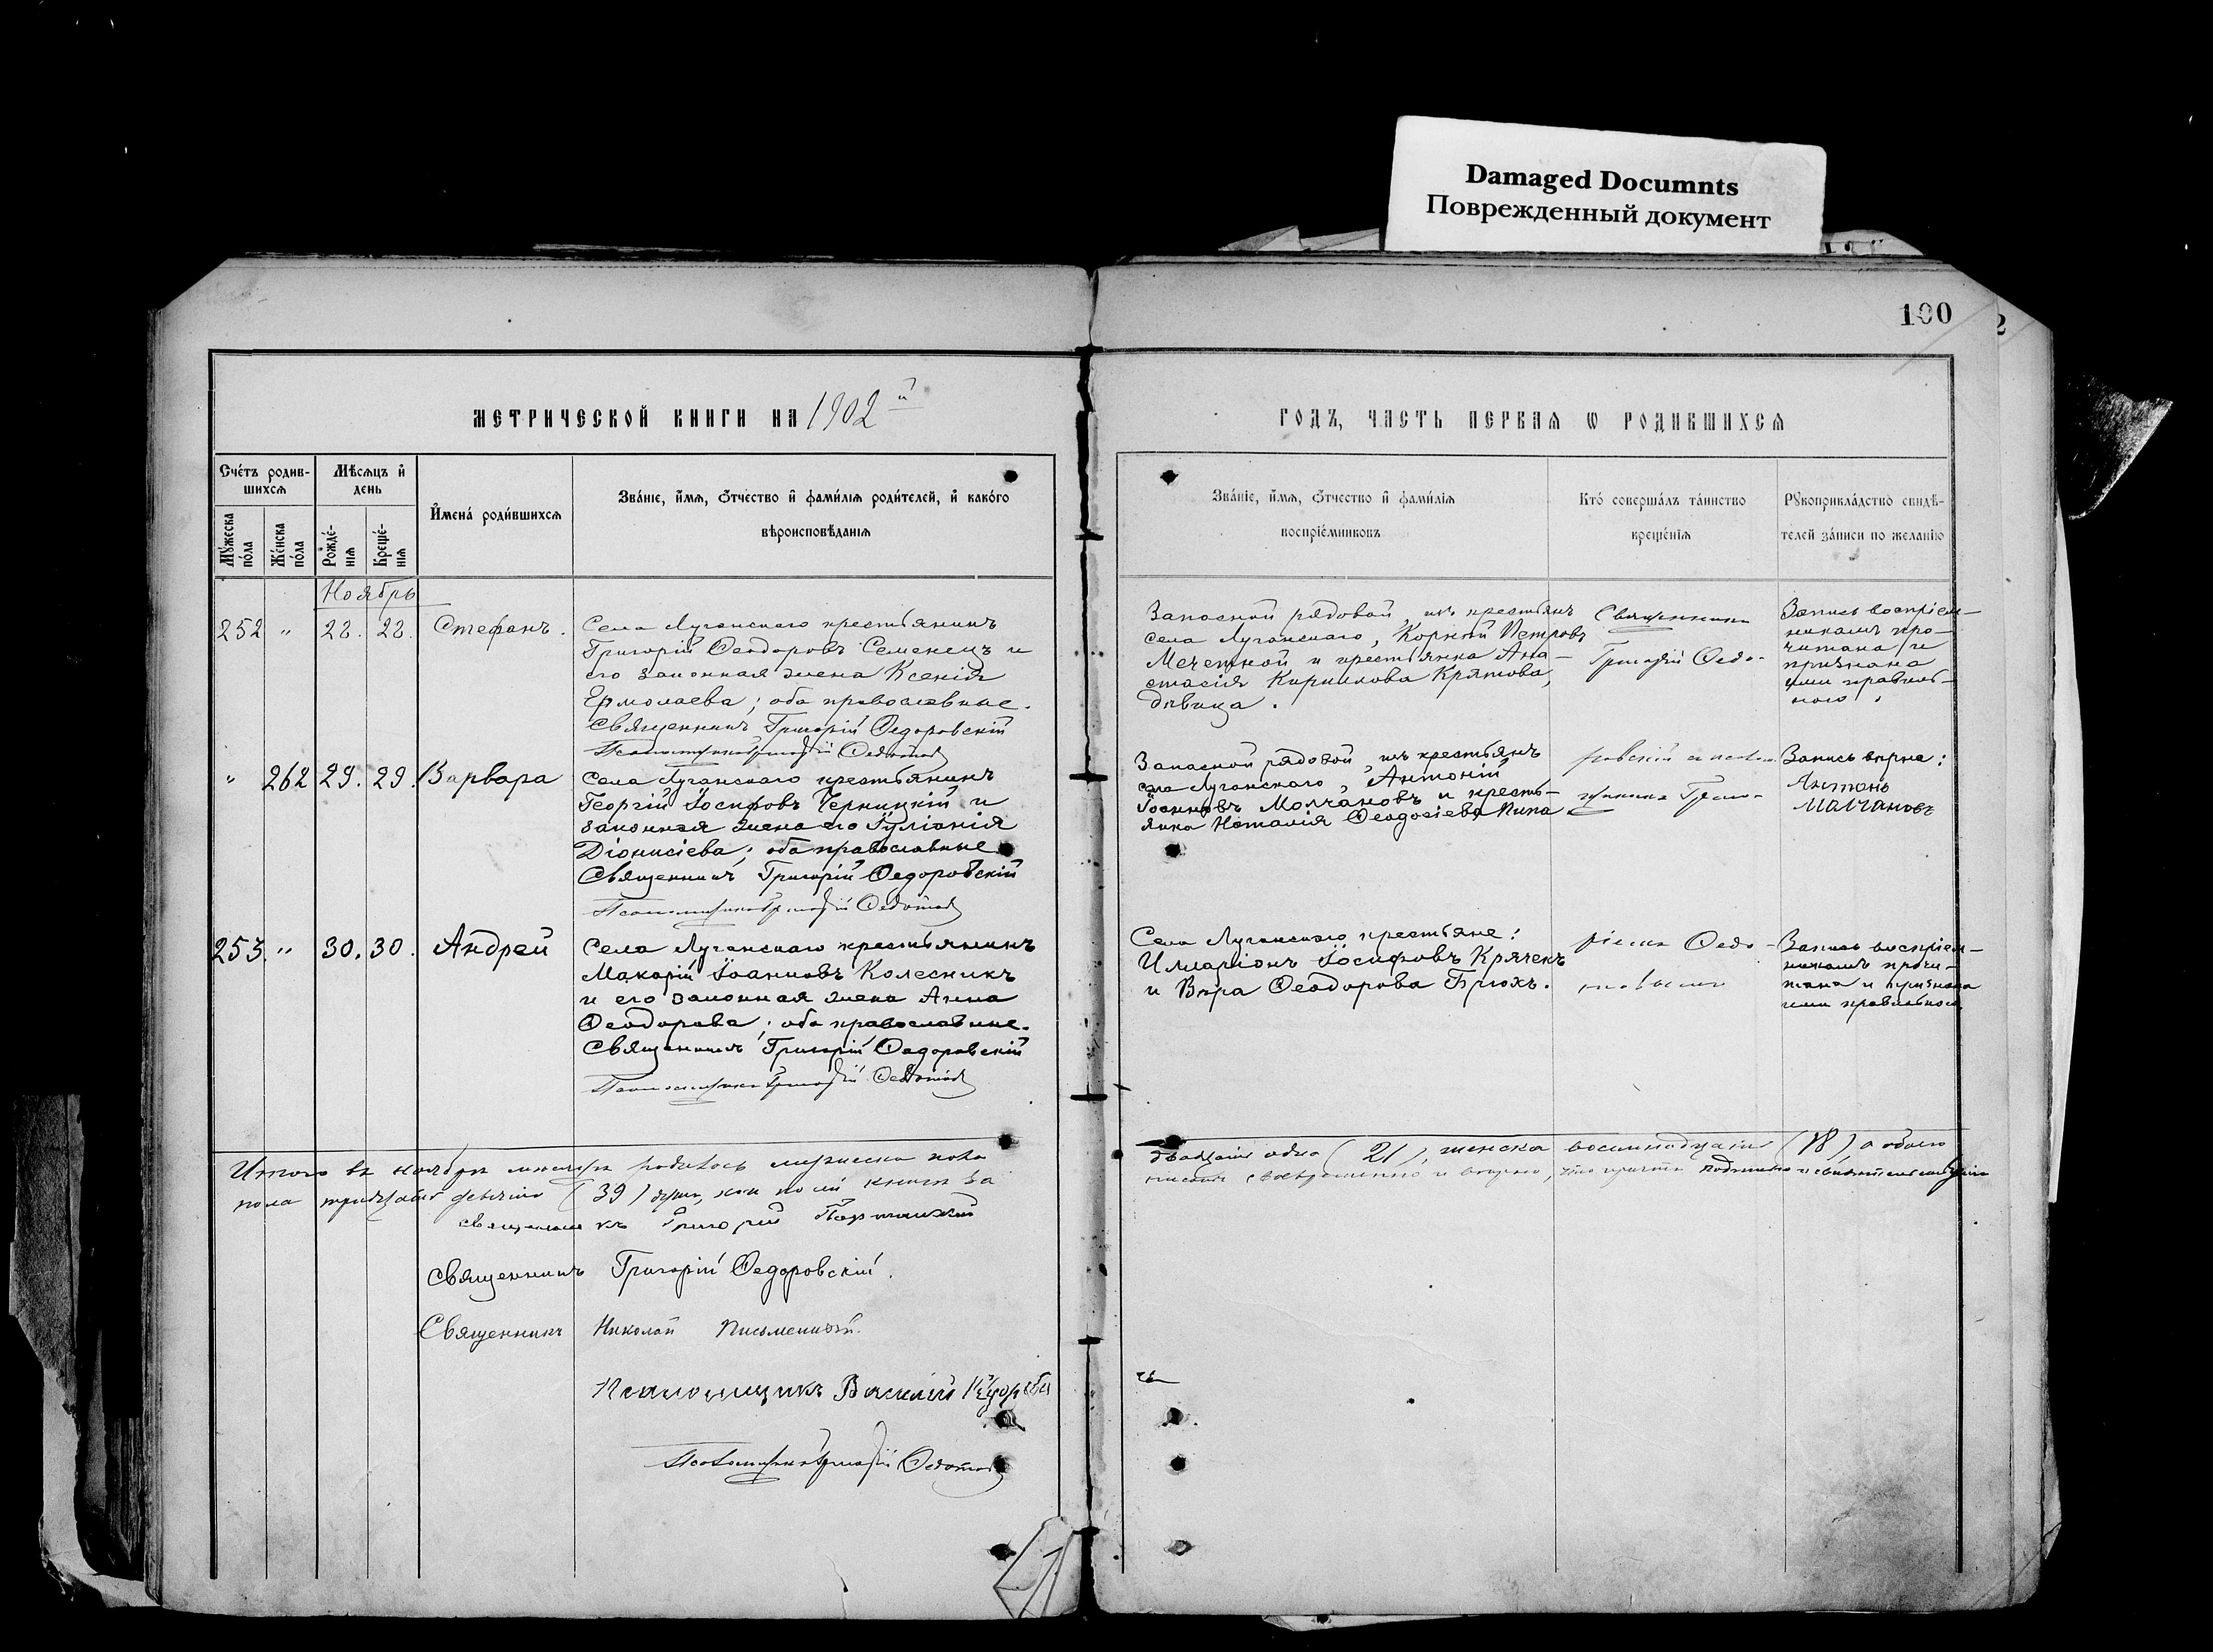 Damaged Documnts
Поврежденный документ
100
2
МЕТРИЧЕСКОЙ КНИГИ НА 1902 й
ГОДЪ, ЧАСТЬ ПЕРВАЯ Ѡ РОДИВШИХСЯ
Счетъ родив-
шихся
Мѣсяцъ и
день
Мужеска
пола
Женска
пола
Рожде-
нія
Креще-
нія
Имена родившихся
Званіе, имя, отчество и фамилія родителей, и какого
вѣроисповѣданія
Званіе, имя, отчество и фамилія
воспріемниковъ
Кто совершалъ таинство
крещенія
Рукоприкладство свидѣ-
телей записи по желанію
Ноябрь
252 " 28. 28. Стефанъ.
Села Луганскаго крестьянинъ
Григорій Ѳеодоровъ Семенецъ и
его законная жена Ксенія
Ермолаева; оба православные.
Священникъ Григорій Ѳедоровскій
Псаломщикъ Григорій Ѳедотов
Запасной рядовой, изъ крестьянъ
села Луганскаго, Корній Петровъ
Мечетной и крестьянка Ана-
стасія Кириллова Крятова,
дѣвица.
Священникъ
Григорій Ѳедо-
Запись воспріем-
никамъ про-
читана и
признана
ими правиль-
ною.
" 262 29. 29. Варвара
Села Луганскаго крестьянинъ
Георгій Іосифовъ Черницкій и
законная жена его Іуліанія
Діонисіева; оба православные
Священникъ Григорій Ѳедоровскій
Псаломщикъ Григорій Ѳедотов
Запасной рядовой, изъ крестьянъ
села Луганскаго, Антоній
Іосифовъ Молчановъ и кресть-
янка Наталія Ѳеодосіева Кипа
ровскій
Запись вѣрна:
Антонъ
Малчановъ
253 " 30. 30. Андрей
Села Луганскаго крестьянинъ
Макарій Іоанновъ Колесникъ
и его законная жена Анна
Ѳеодорова; оба православные.
Священникъ Григорій Ѳедоровскій
Псаломщикъ Григорій Ѳедотов
Села Луганскаго крестьяне:
Илларіонъ Іосифовъ Крячекъ
и Вѣра Ѳеодорова Брюхъ.
ріемъ Ѳедо-
Запись воспріем-
никамъ прочи-
тана и признана
ими правильною
Итого въ ноябрѣ мѣсяцѣ родилось мужеска пола
двадцать одно (21), женска восемнадцать (18), а обоего
пола тридцать девять (39)
Священникъ Григорій
Священникъ Григорій Ѳедоровскій.
Священникъ Николай Письменный.
Псаломщикъ Василій
Псаломщикъ Григорій Ѳедотов